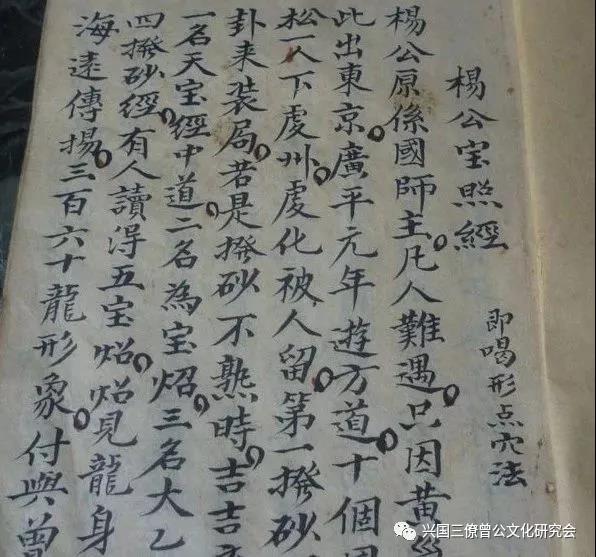 楊公宝照經
即喝形点穴法
楊公原係國師主。凡人難遇。只因黄
此出東京。廣平元年遊方道。十個
松一人下虔州。虔化被人留。第一撥砂
卦来装局。若是撥砂不熟時。吉吉
一名天宝經中道。二名為宝炤。三名大乙
四撥砂經。有人讀得五宝炤。炤見龍身
海遠傳揚。三百六十龍形象。付與曾
兴国三僚曾公文化研究会